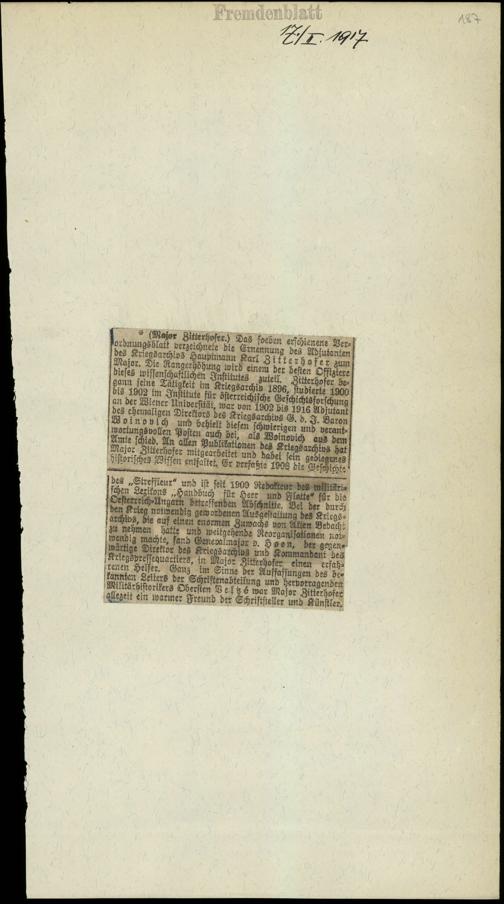 Fremdenblatt
187
17./I. 1917
* (Major Zitterhofer.) Das soeben erschienene Ver-
ordnungsblatt verzeichnete die Ernennung des Adjutanten
des Kriegsarchivs Hauptmann Karl Zitterhofer zum
Major. Die Rangerhöhung wird einem der besten Offiziere
dieses wissenschaftlichen Institutes zuteil. Zitterhofer be-
gann seine Tätigkeit im Kriegsarchiv 1896, studierte 1900
bis 1902 im Institute für österreichische Geschichtsforschung
an der Wiener Universität, war von 1902 bis 1916 Adjutant
des ehemaligen Direktors des Kriegsarchivs G. d. J. Baron
Woinovich und behielt diesen schwierigen und verant-
wortungsvollen Posten auch bei, als Woinovich aus dem
Amte schied. An allen Publikationen des Kriegsarchivs hat
Major Zitterhofer mitgearbeitet und dabei sein gediegenes
historisches Wissen entfaltet. Er verfaßte 1908 die Geschichte
des „Streffleur“ und ist seit 1909 Redakteur des militäri-
schen Lexikons „Handbuch für Heer und Flotte“ für die
Oesterreich-Ungarn betreffenden Abschnitte. Bei der durch
den Krieg notwendig gewordenen Ausgestaltung des Kriegs-
archivs, die auf einen enormen Zuwachs von Akten Bedacht
zu nehmen hatte und weitgehende Reorganisationen not-
wendig machte, fand Generalmajor v. Hoen, der gegen-
wärtige Direktor des Kriegsarchivs und Kommandant des
Kriegspressequartiers, in Major Zitterhofer einen erfah-
renen Helfer. Ganz im Sinne der Auffassungen des be-
kannten Leiters der Schriftenabteilung und hervorragenden
Militärhistorikers Obersten Veltzé war Major Zitterhofer
allezeit ein warmer Freund der Schriftsteller und Künstler.